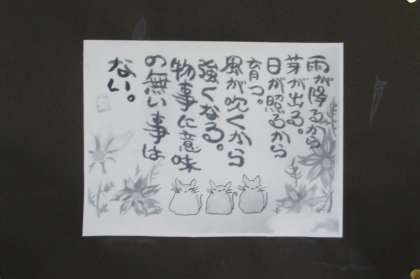 雨が降るから
芽が出る。
日が照るから
育つ。
風が吹くから
強くなる。
物事に意味
の無い事は
ない。